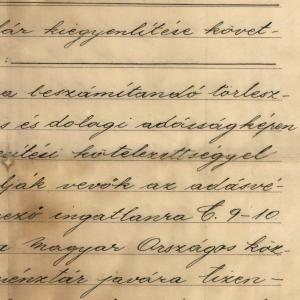 ár kiegyenlitése követ-
a beszámitandó törlesz-
s és dologi adósságképen
itési kötelezettséggel
ják vevők az adásvé-
ező ingatlanra C. 9-10.
a Magyar Országos Köz-
pénztár javára tizen-